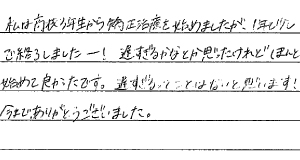 私は高校3年生から矯正治療を始めましたが、1年ちょい
で終了しましたー!遅すぎるかなとか思ったけれどほんと
始めて良かったです。遅すぎるってことはないと思います!
今までありがとうございました。